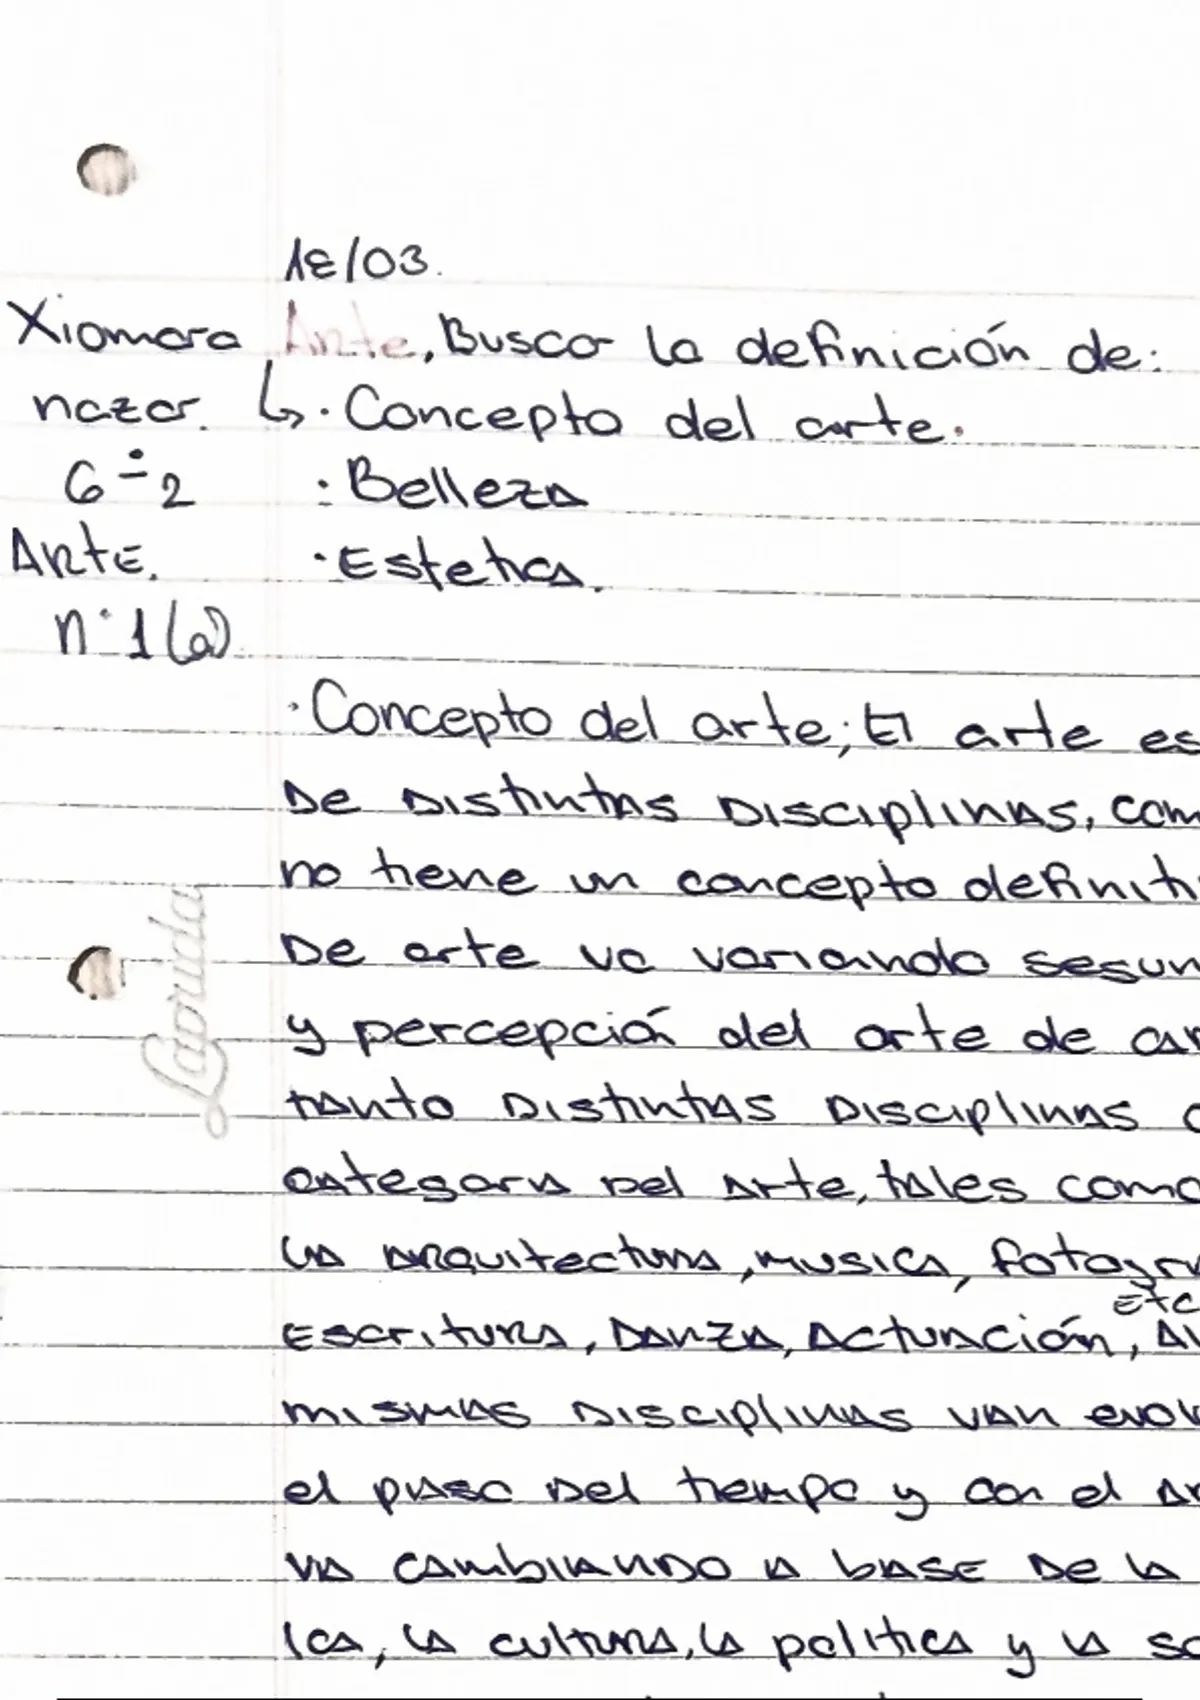 18/03.
Xiomara Arte, Busco la definición de:
nazar. ↳· Concepto del arte.
6÷2 : Belleza
Arte. · Estetica.
n°1(a)
· Concepto del arte; El arte es
De Distintas Disciplinas, com
no tiene un concepto definiti
De arte va variando segun
y percepción del arte de ca
tanto Distintas Disciplinas
categoria Del Arte, tales como
la arquitectura, musica, fotogra
Etc
Escritura, Danza, Actuación, Al
mismas Disciplinas van evol
el paso Del tiempo y con el ar
va cambiando a base De la
ica, la cultura, la politica y la so
Laprida